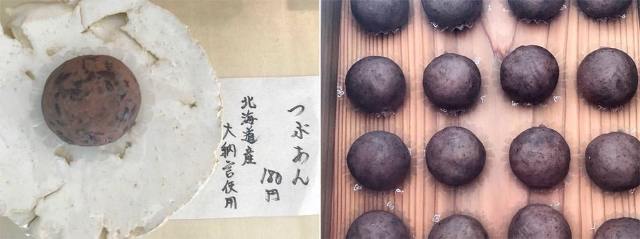 つぶあん
180円
北海道産
大納言使用